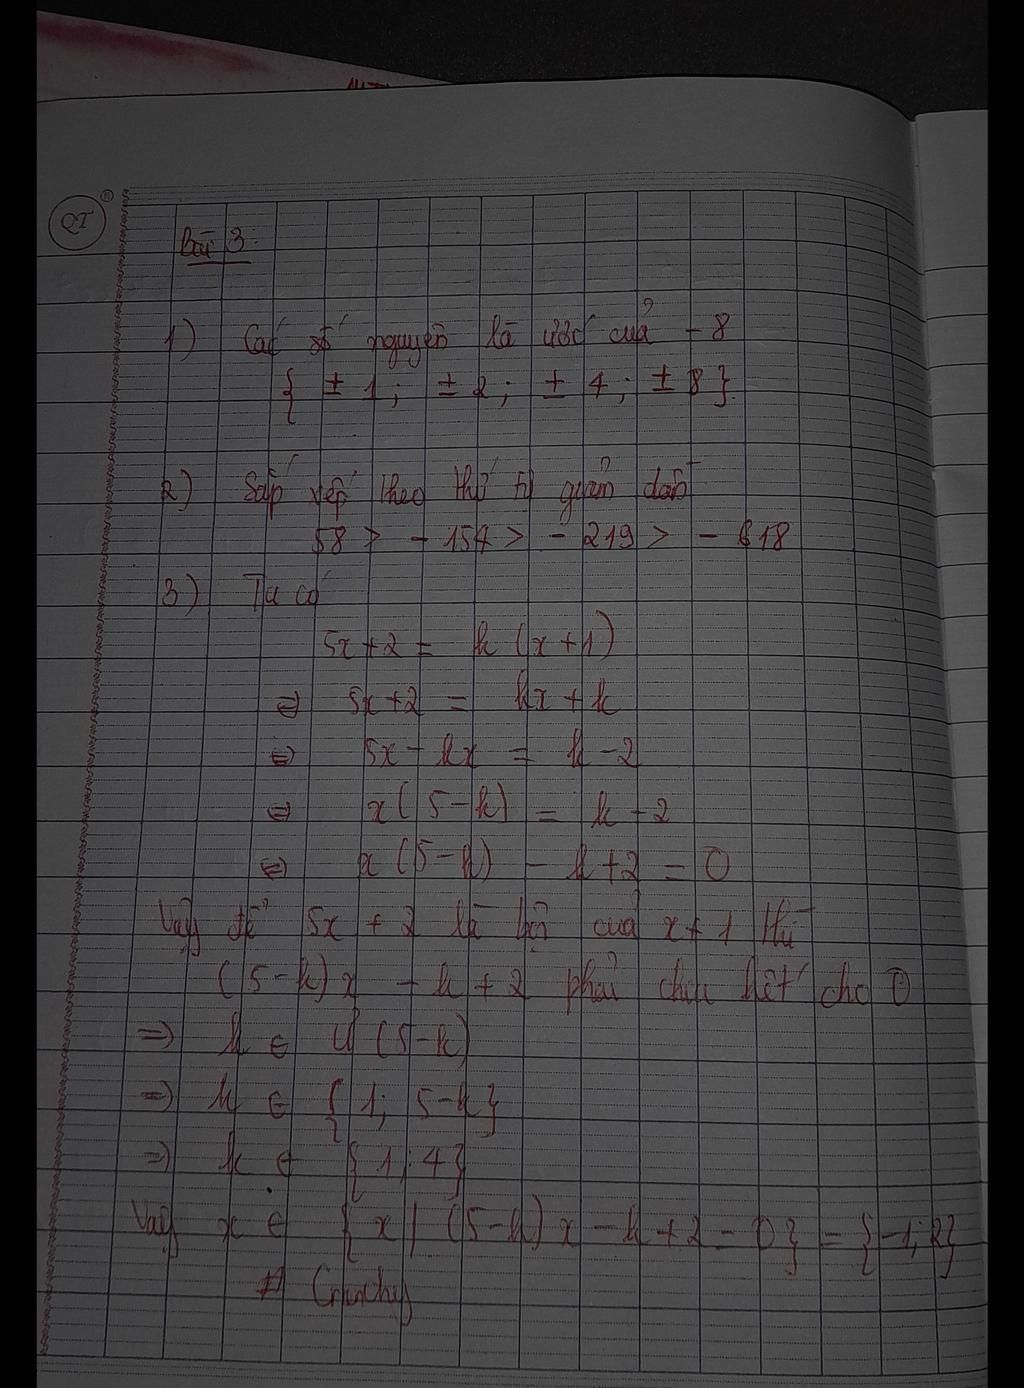 QT
Bài 3:
1) Các số nguyên là ước của - 8
{ ± 1; ± 2; ± 4; ± 8 }
2) Sắp xếp theo thứ tự giảm dần
58 > - 154 > - 219 > - 618
3) Ta có
5x + 2 = k (x + 1)
⇒ 5x + 2 = kx + k
⇔ 5x - kx = k - 2
⇔ x ( 5 - k) = k - 2
⇔ x (5 - k) - k + 2 = 0
Vậy để 5x + 2 là bội của x + 1 thì
(5 - k) x - k + 2 phải chia hết cho 0
⇒ k ∈ Ư (5 - k)
⇒ k ∈ { 1; 5 - k }
⇒ k ∈ { 1; 4 }
Vậy x ∈ { x | (5 - k) x - k + 2 = 0 } = { -1; 2 }